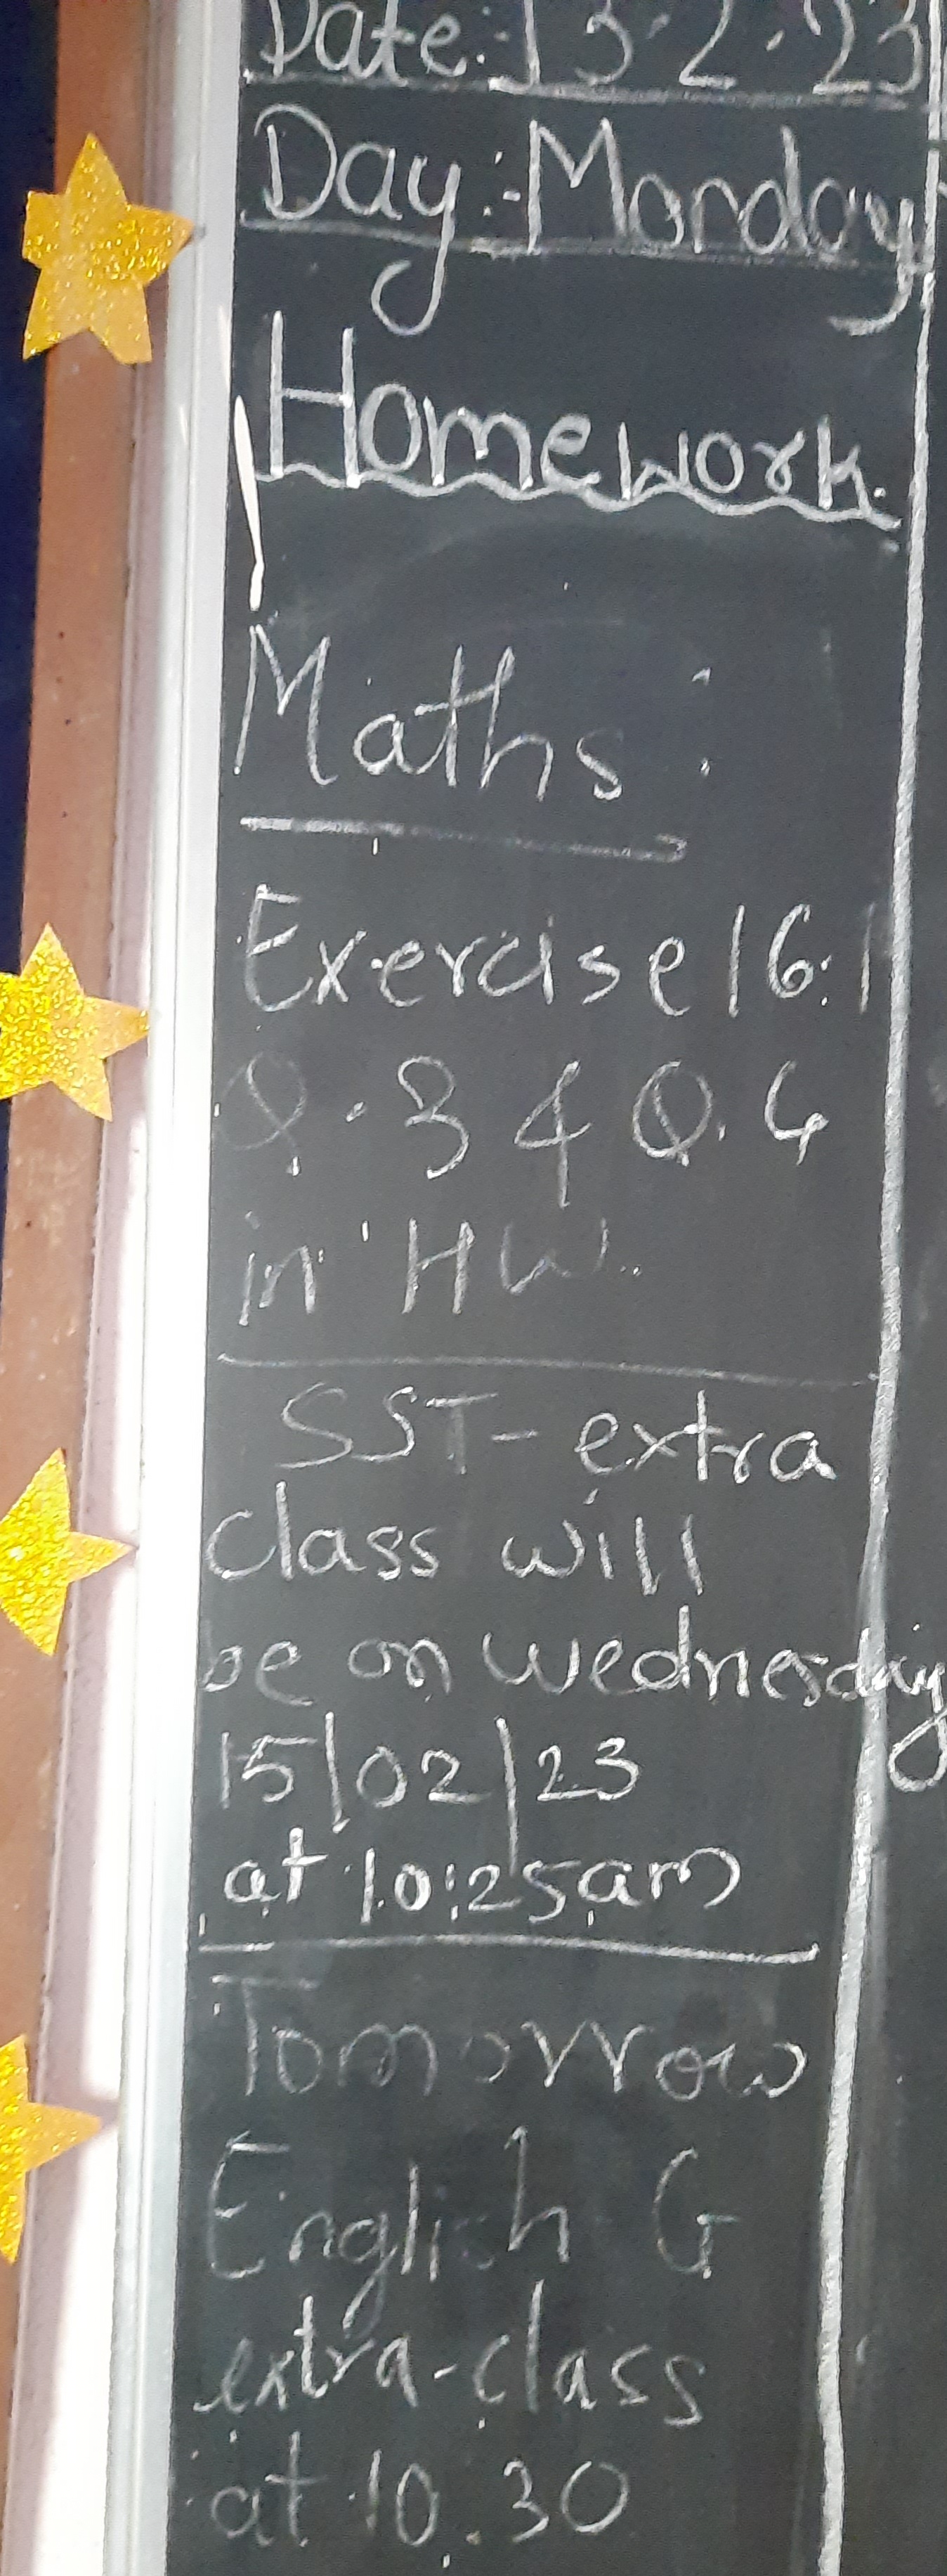 Date:- 13.2.23
Day:- Monday
Homework.
Maths :
Exercise 16.1
Q.3 & Q.4
in HW.
SST- extra
class will
be on wednesday
15/02/23
at 10:25am
Tomorrow
English G
extra-class
at 10.30